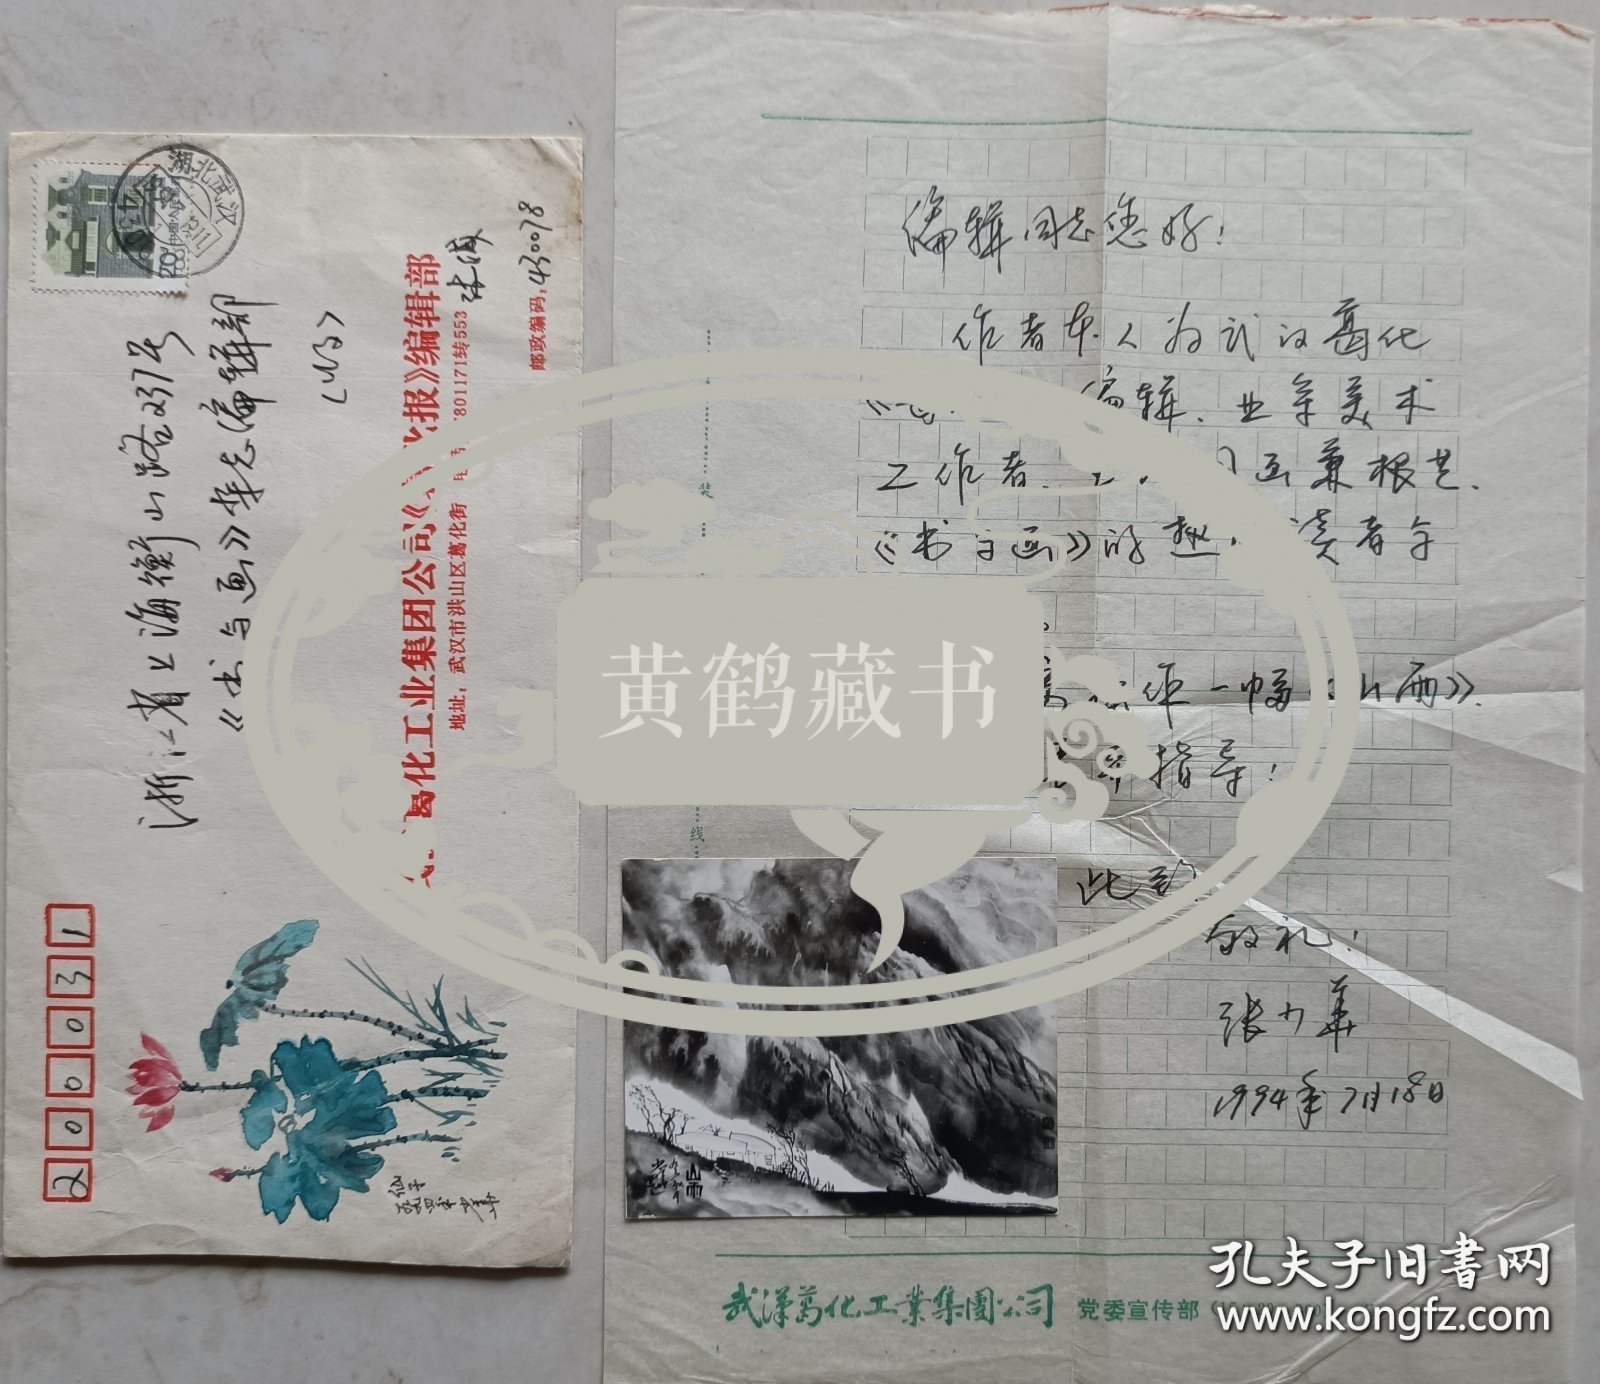 湖北武汉
浙江省上海衡山路237号
《书与画》李志编辑部
(收)
葛化工业集团公司《
报》编辑部
地址：武汉市洪山区葛化街
801171转553
邮政编码：430078
200031
仙子
一九九四年少华
编辑同志您好！
作者本人为武汉葛化
编辑、业余美术
工作者、
画兼根艺.
《书与画》的
读者
作一幅《山雨》.
指导！
此致
敬礼！
张少华
1994年7月18日
山雨
装
线
武汉葛化工业集团公司 党委宣传部
黄鹤藏书
孔夫子旧书网
www.kongfz.com